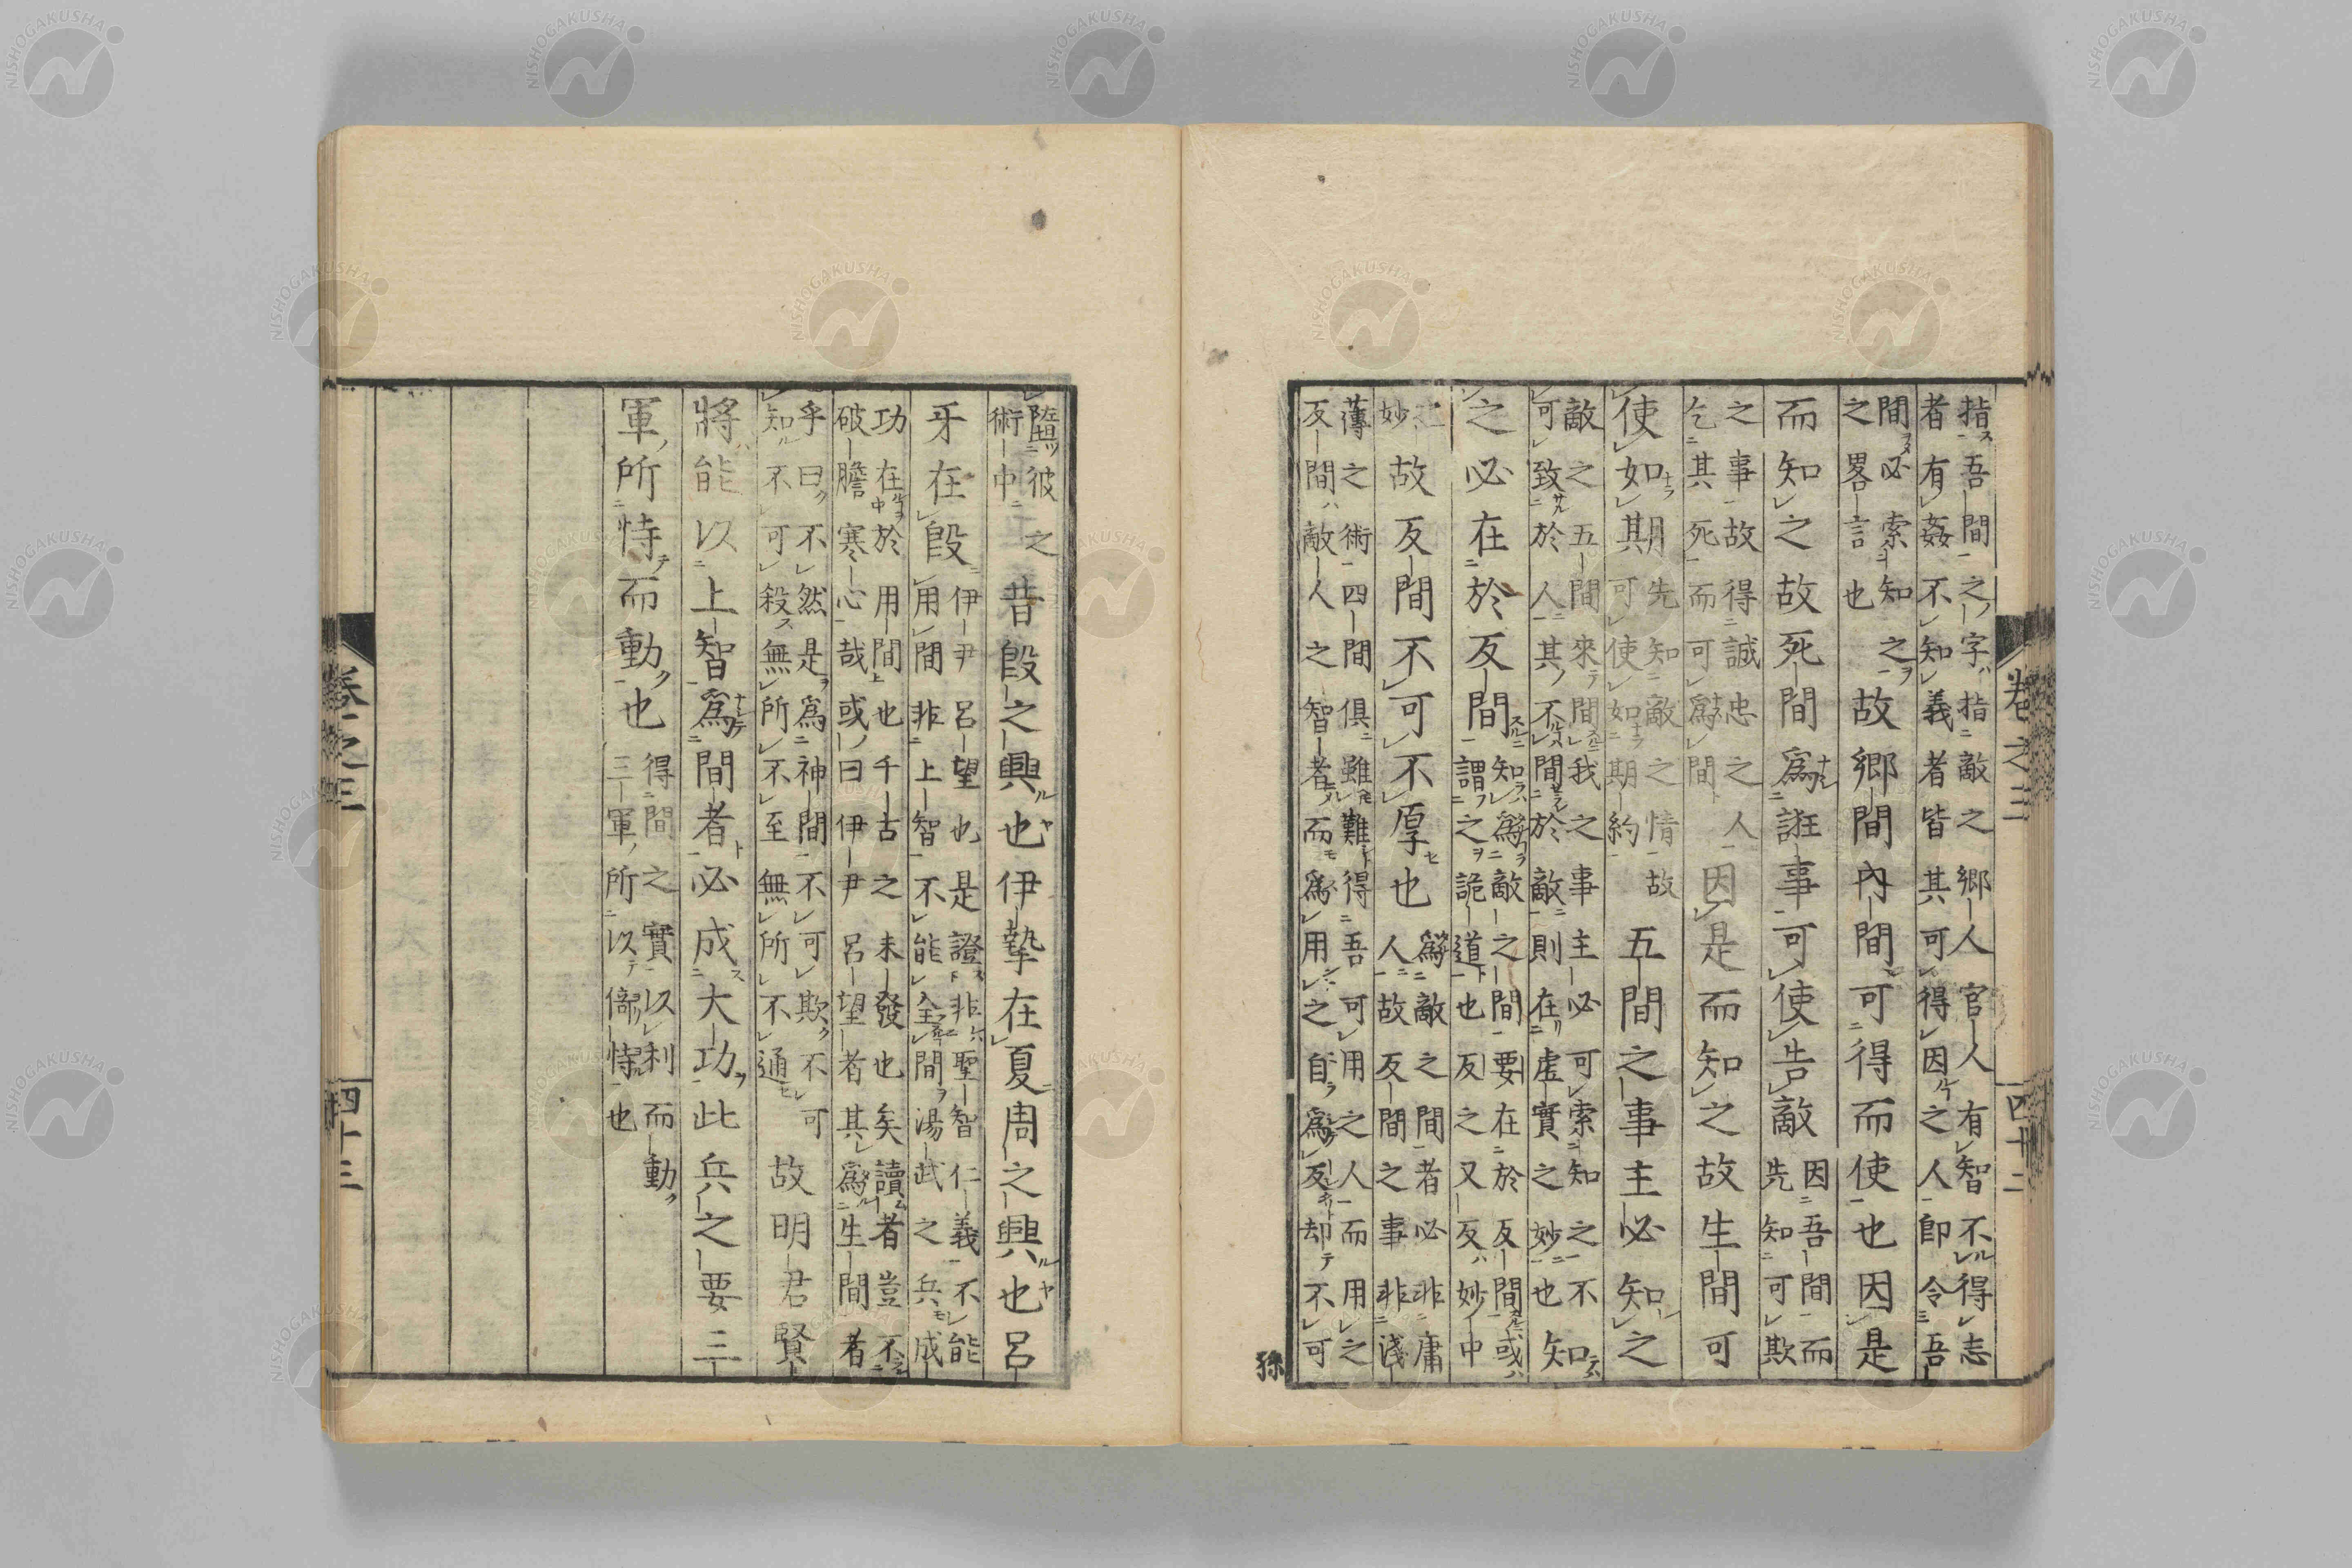 指吾間之字指敵之鄉人官人有智不得志
者有姦不知義者皆其可得因之人卽令吾
間必索知之
之畧言也
故鄉間內間可得而使也因是
而知之故死間爲誑事可使告敵
因吾間而
先知可欺
之事故得誠忠之人
乞其死而可爲間
因是而知之故生間可
使如期
先知敵之情故
可使如期約
五間之事主必知之
敵之五間來間我之事主必可索知之不
可致於人其不間於敵則在虛實之妙也
知
之必在於反間
知爲敵之間要在於反間或
謂之詭道也反之又反妙中
之
妙
故反間不可不厚也
爲敵之間者必非庸
人故反間之事非淺
薄之術四間俱雖難得吾可用之人而用之
反間敵人之智者而爲用之自爲反却不可
孫
卷之三
四十二
隳彼之
術中
昔殷之興也伊摯在夏周之興也呂
牙在殷
伊尹呂望也是證非聖智仁義不能
用間非上智不能全間湯武之兵成
功在於用間也千古之未發也矣讀者豈不
破膽寒心哉或曰伊尹呂望者其爲生間者
乎曰不然是爲神間不可欺不可
知不可殺無所不至無所不通
故明君賢
將能以上智爲間者必成大功此兵之要三
軍所恃而動也
得間之實以利而動
三軍所以倚恃也
卷之三
四十三